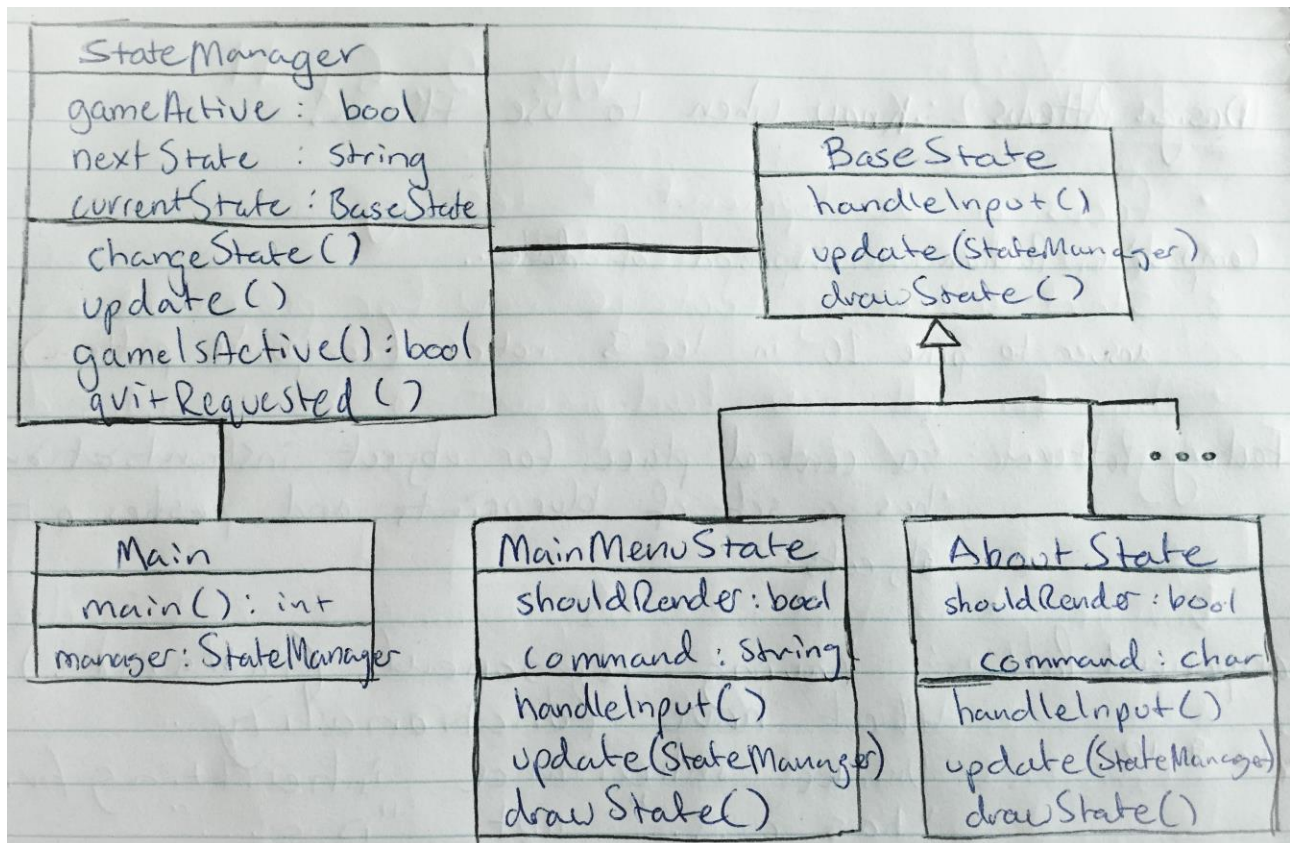 StateManager
gameActive : bool
nextState : String
currentState : BaseState
changeState()
update()
gameIsActive() : bool
quitRequested()
BaseState
handleInput()
update(StateManager)
drawState()
...
Main
main() : int
manager : StateManager
MainMenuState
shouldRender : bool
command : String
handleInput()
update(StateManager)
drawState()
AboutState
shouldRender : bool
command : char
handleInput()
update(StateManager)
drawState()